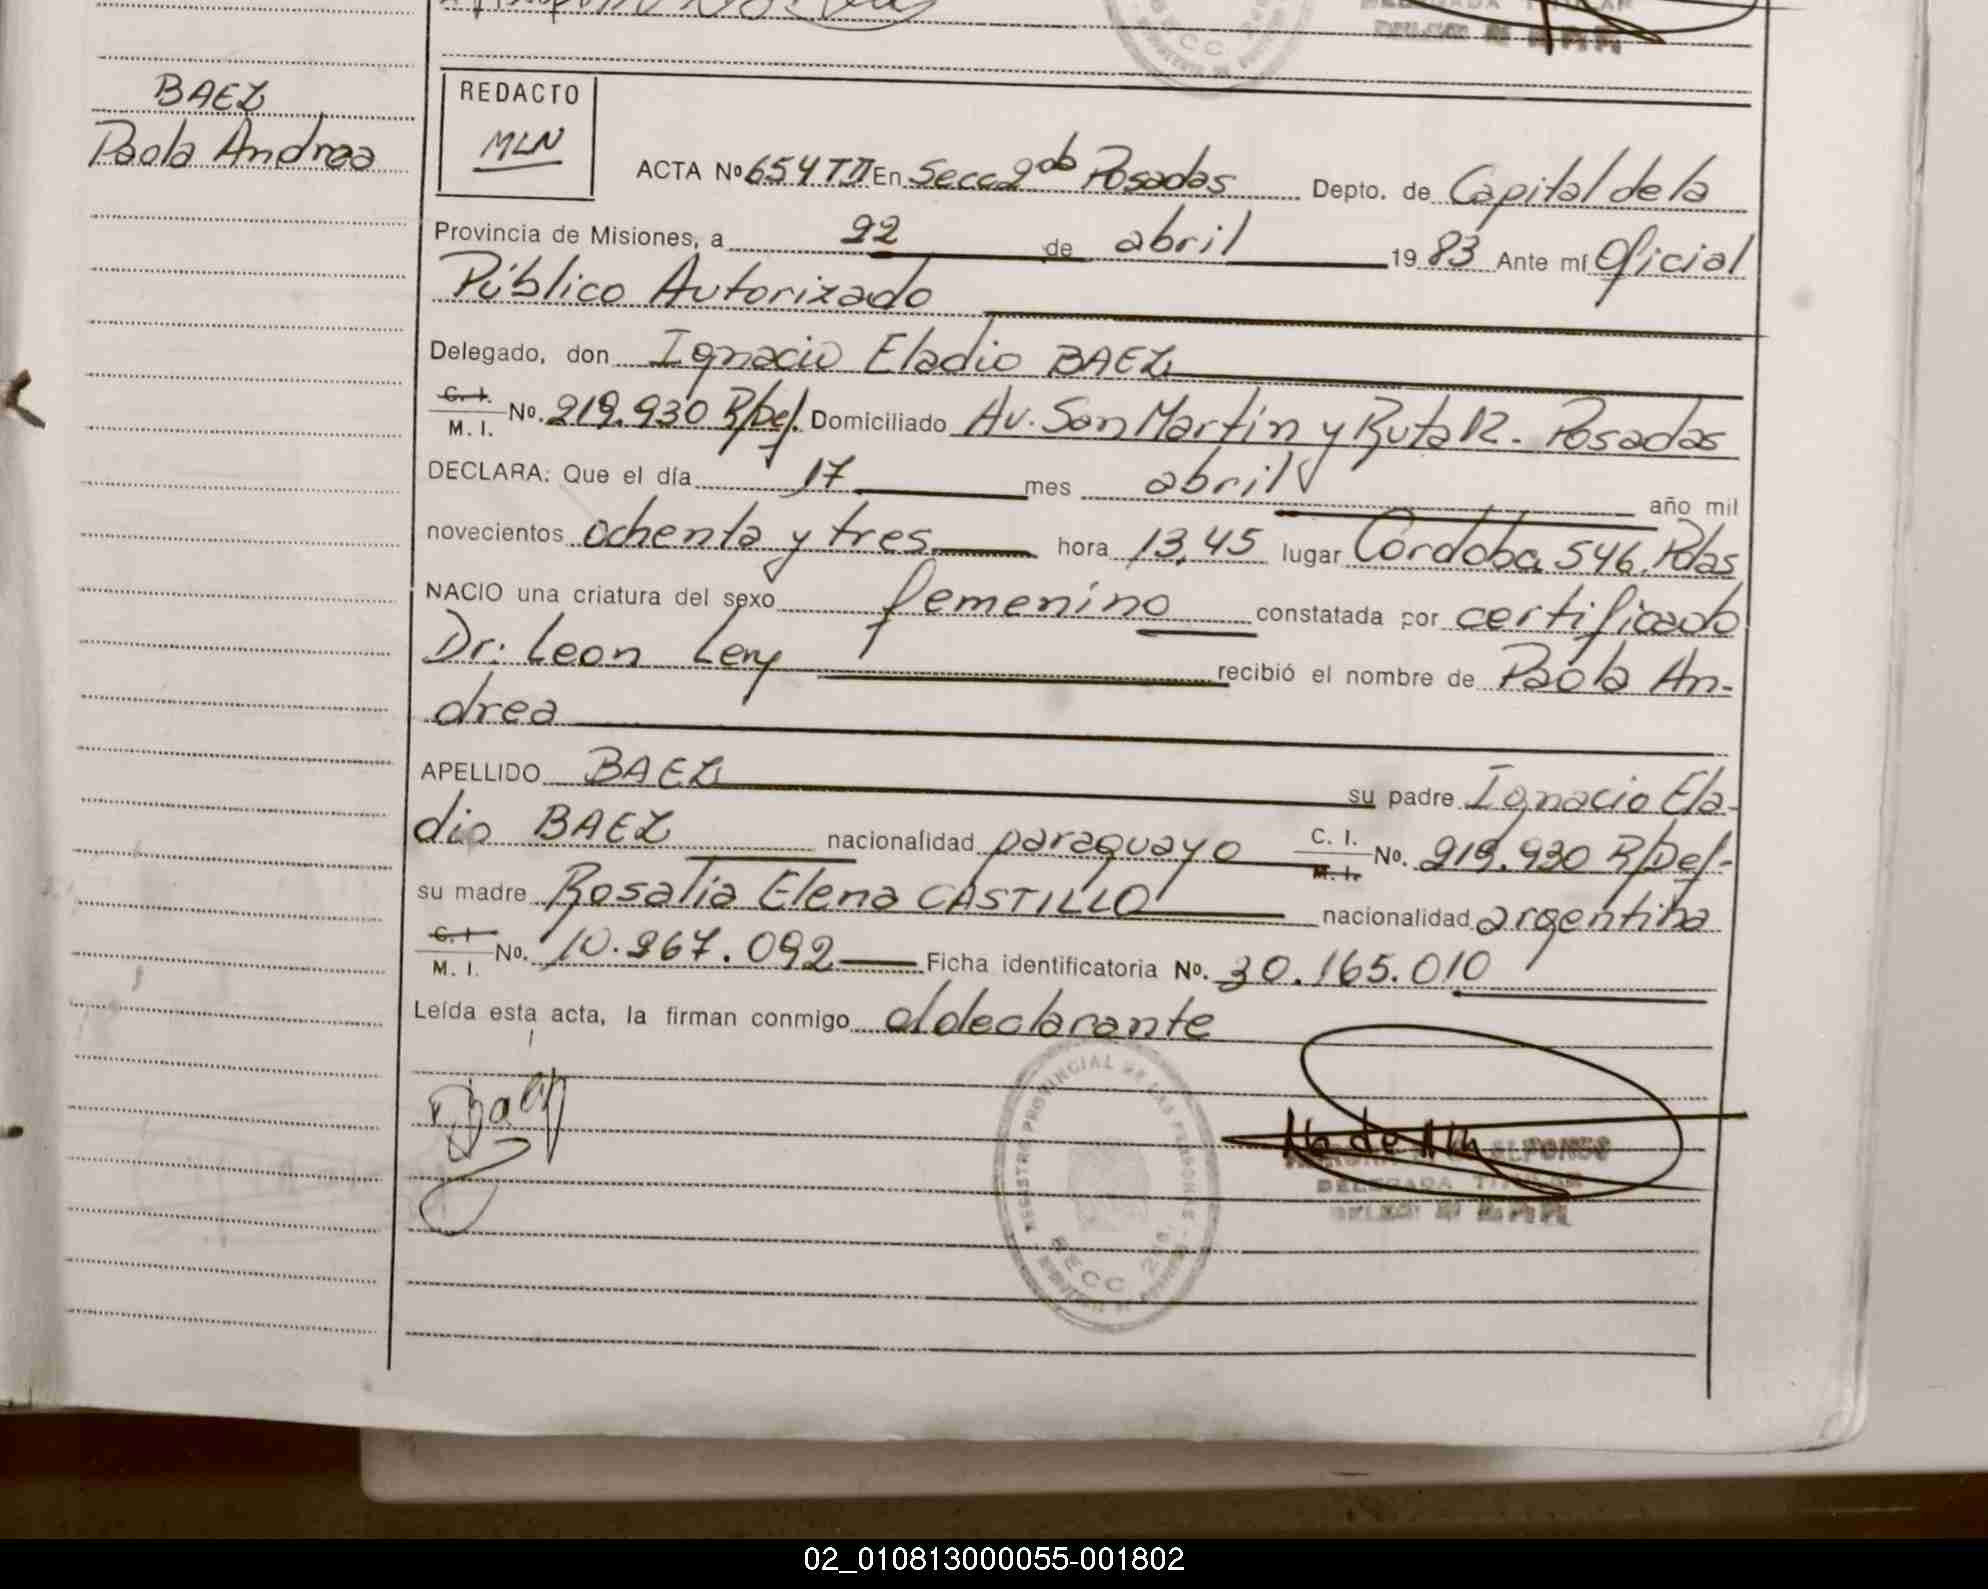 BAEZ
Paola Andrea
REDACTO
MLN
ACTA Nº 654 TII En Secc 2da Posadas Depto. de Capital de la
Provincia de Misiones, a 22 de abril 1983 Ante mí Oficial
Público Autorizado
Delegado, don Ignacio Eladio BAEZ
C. I. M. I. Nº. 219.930 R/Def. Domiciliado Av. San Martin y Ruta 12. Posadas
DECLARA: Que el día 17 mes abril año mil
novecientos ochenta y tres hora 13,45 lugar Córdoba 546. Pdas
NACIO una criatura del sexo femenino constatada por certificado
Dr. Leon Leny recibió el nombre de Paola An-
drea
APELLIDO BAEZ su padre Ignacio Ela-
dio BAEZ nacionalidad paraguayo C. I. M. I. Nº. 219.930 R/Def-
su madre Rosalia Elena CASTILLO nacionalidad argentina
C. I. M. I. Nº. 10.967.092 Ficha identificatoria Nº. 30.165.010
Leída esta acta, la firman conmigo el declarante
REGISTRO PROVINCIAL DE LAS PERSONAS
SECC 2da.
ALFONSO
DELEGADA TITULAR
02_010813000055-001802